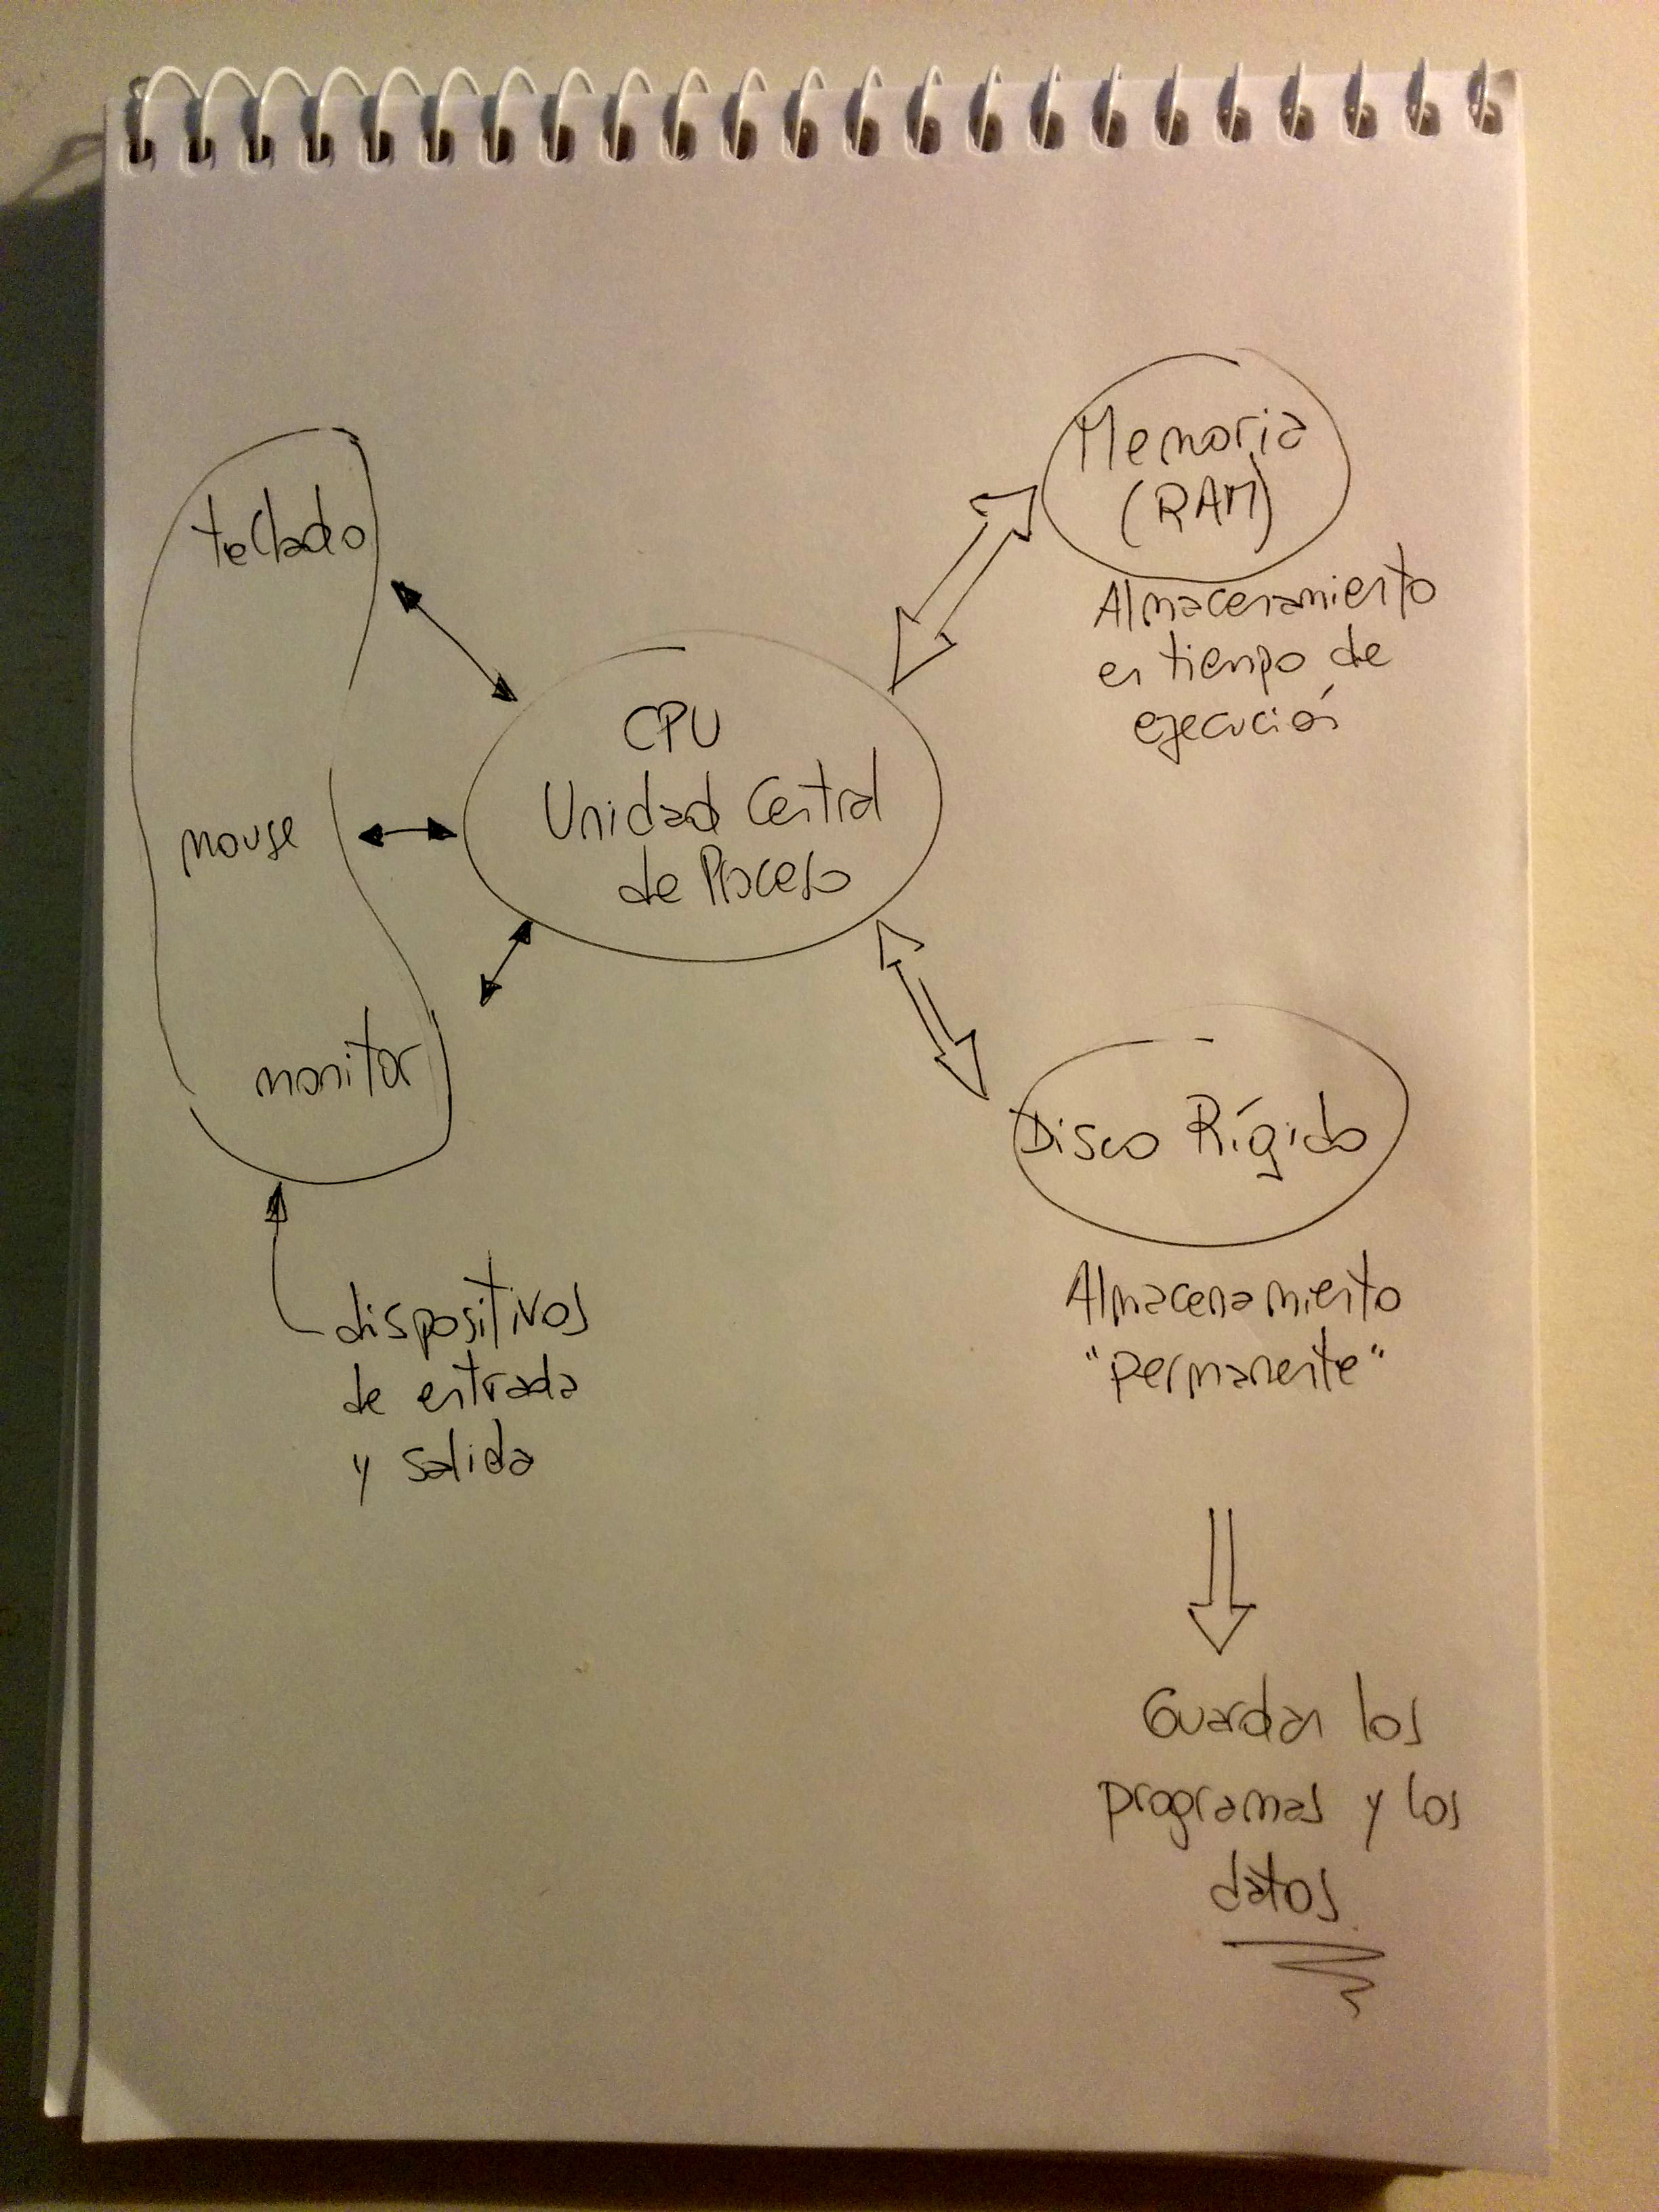 teclado
mouse
monitor
dispositivos
de entrada
y salida
CPU
Unidad Central
de Proceso
Memoria
(RAM)
Almacenamiento
en tiempo de
ejecución
Disco Rígido
Almacenamiento
"permanente"
Guardan los
programas y los
datos